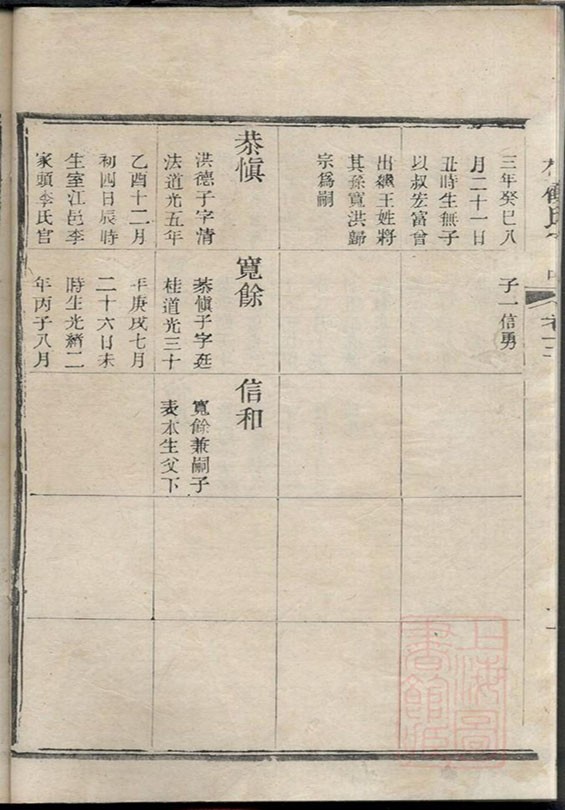 三年癸巳八
月二十一日
丑時生無子
以叔宏富曾
出繼王姓將
其孫寬洪歸
宗爲嗣
子一信勇
恭愼
洪德子字清
法道光五年
乙酉十二月
初四日辰時
生室江邑李
家頭李氏官
寬餘
恭愼子字廷
桂道光三十
年庚戌七月
二十六日未
時生光緒二
年丙子八月
信和
寬餘兼嗣子
表本生父下
上海圖
書館藏